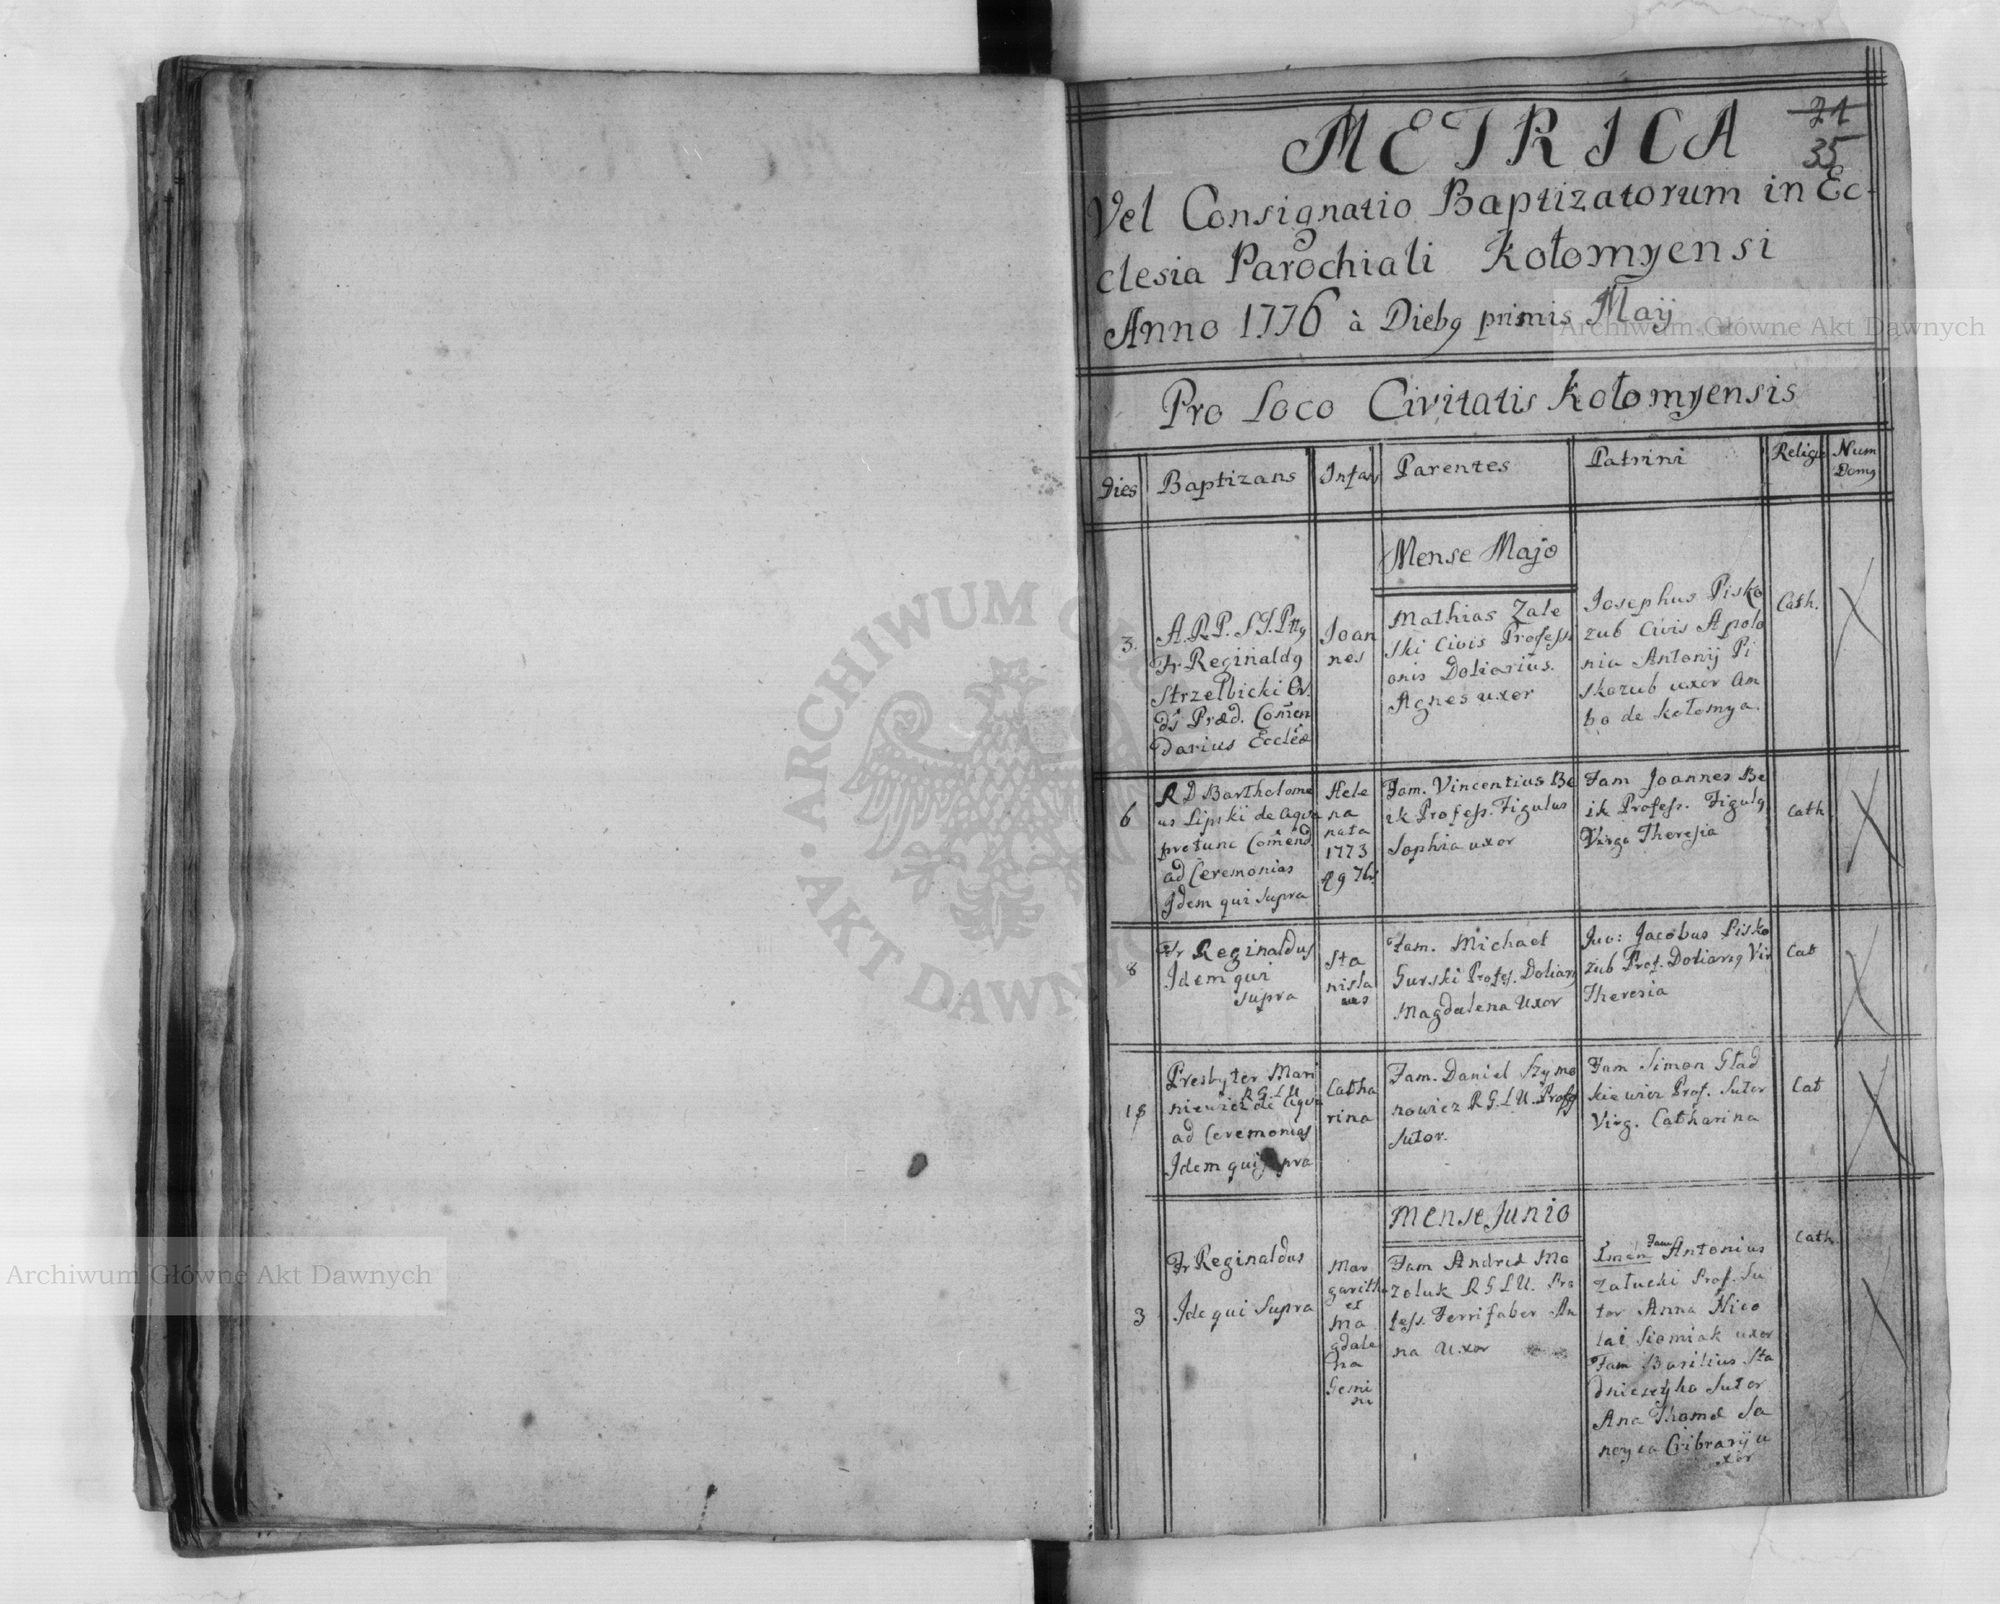 METRICA
21
35
Vel Consignatio Baptizatorum in Ec-
clesia Parochiali Kołomyensi
Anno 1776 à Dieb9 primis Maÿ
Pro Loco Civitatis Kołomyensis
Dies
Baptizans
Infans
Parentes
Patrini
Religio
Num
Dom9
Mense Majo
3.
A.R.P. S.T.
Fr. Reginald9
Strzelbicki Or.
Præd. Comen
darius Ecclæ
Joan
nes
Mathias Zale
ski Civis Profess
onis Doliarius.
Agnes uxor
Josephus Pisko
zub Civis Apolo
nia Antonij Pi
skozub uxor am
bo de Kołomya.
Cath.
6
R D Bartholome
us Lipski de aqua
pro tunc Comend
ad Ceremonias
Idem qui supra
Hele
na
nata
1773
Fam. Vincentius Be
ik Profess. Figulus
Sophia uxor
Fam Joannes Be
ik Profess. Figul9
Virgo Theresia
Cath
8
Fr Reginaldus
Idem qui
supra
Sta
nisla
us
Fam. Michael
Gurski Profes. Doliari9
Magdalena Uxor
Juv: Jacobus Pisko
zub Prof. Doliari9 Vir
Theresia
Cat
Presbyter Mari
R G L U
niewicz de aqua
ad Ceremonias
Idem qui supra
Catha
rina
Fam. Daniel Szymo
nowicz R G. L U. Profess
Sutor.
Fam Simon Gład
kiewicz Prof. Sutor
Virg. Catharina
Cat
Mense Junio
3
Fr Reginaldus
Ide qui Supra
Mar
garitha
et
Ma
gdale
na
Gemi
ni
Fam Andreas Ma
zoluk R G L U. Pro
fess. Ferrifaber An
na Uxor
Fam
Antonius
Załucki Prof. Su
tor Anna Nico
lai Siomiak uxor
Fam Basilius Sta
dniczyha Sutor
Ana Thomæ Sa
Cribrarij u
xor
Cath.
Archiwum Główne Akt Dawnych
Archiwum Główne Akt Dawnych